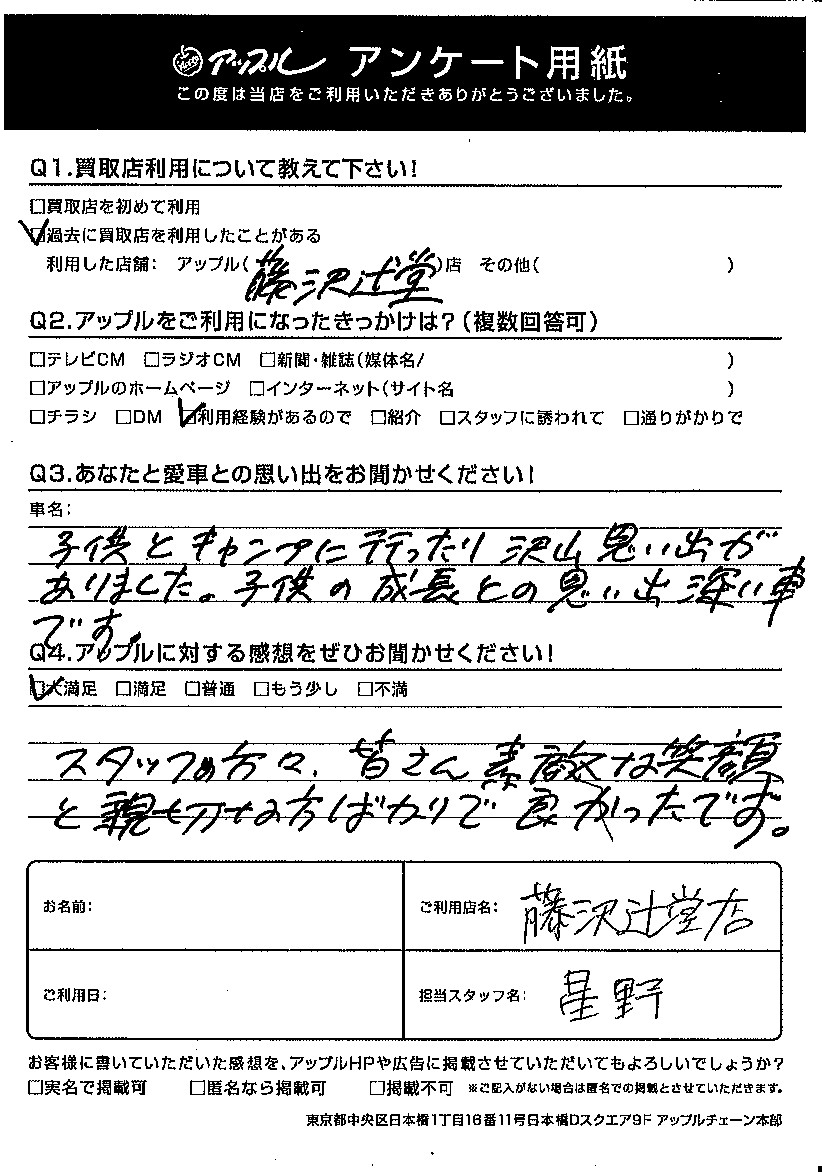 アップル アンケート用紙
この度は当店をご利用いただきありがとうございました。
Q1.買取店利用について教えて下さい!
□買取店を初めて利用
☑過去に買取店を利用したことがある
利用した店舗: アップル(藤沢辻堂)店 その他( )
Q2.アップルをご利用になったきっかけは?(複数回答可)
□テレビCM □ラジオCM □新聞・雑誌(媒体名/ )
□アップルのホームページ □インターネット(サイト名 )
□チラシ □DM ☑利用経験があるので □紹介 □スタッフに誘われて □通りがかりで
Q3.あなたと愛車との思い出をお聞かせください!
車名:
子供とキャンプに行ったり沢山思い出が
ありました。子供の成長との思い出深い車
です。
Q4.アップルに対する感想をぜひお聞かせください!
☑大満足 □満足 □普通 □もう少し □不満
スタッフの方々、皆さん素敵な笑顔
と親切な方ばかりで良かったです。
お名前:
ご利用店名: 藤沢辻堂店
ご利用日:
担当スタッフ名: 星野
お客様に書いていただいた感想を、アップルHPや広告に掲載させていただいてもよろしいでしょうか?
□実名で掲載可 □匿名なら掲載可 □掲載不可 ※ご記入がない場合は匿名での掲載とさせていただきます。
東京都中央区日本橋1丁目16番11号日本橋Dスクエア9F アップルチェーン本部